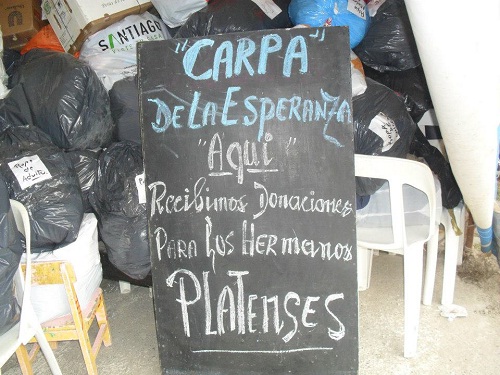 SANTIAGO
"CARPA"
DE LA ESPERANZA
"AQUI"
Recibimos Donaciones
PARA Los HERmanos
PLATENSES
Ropa
de
Adulto